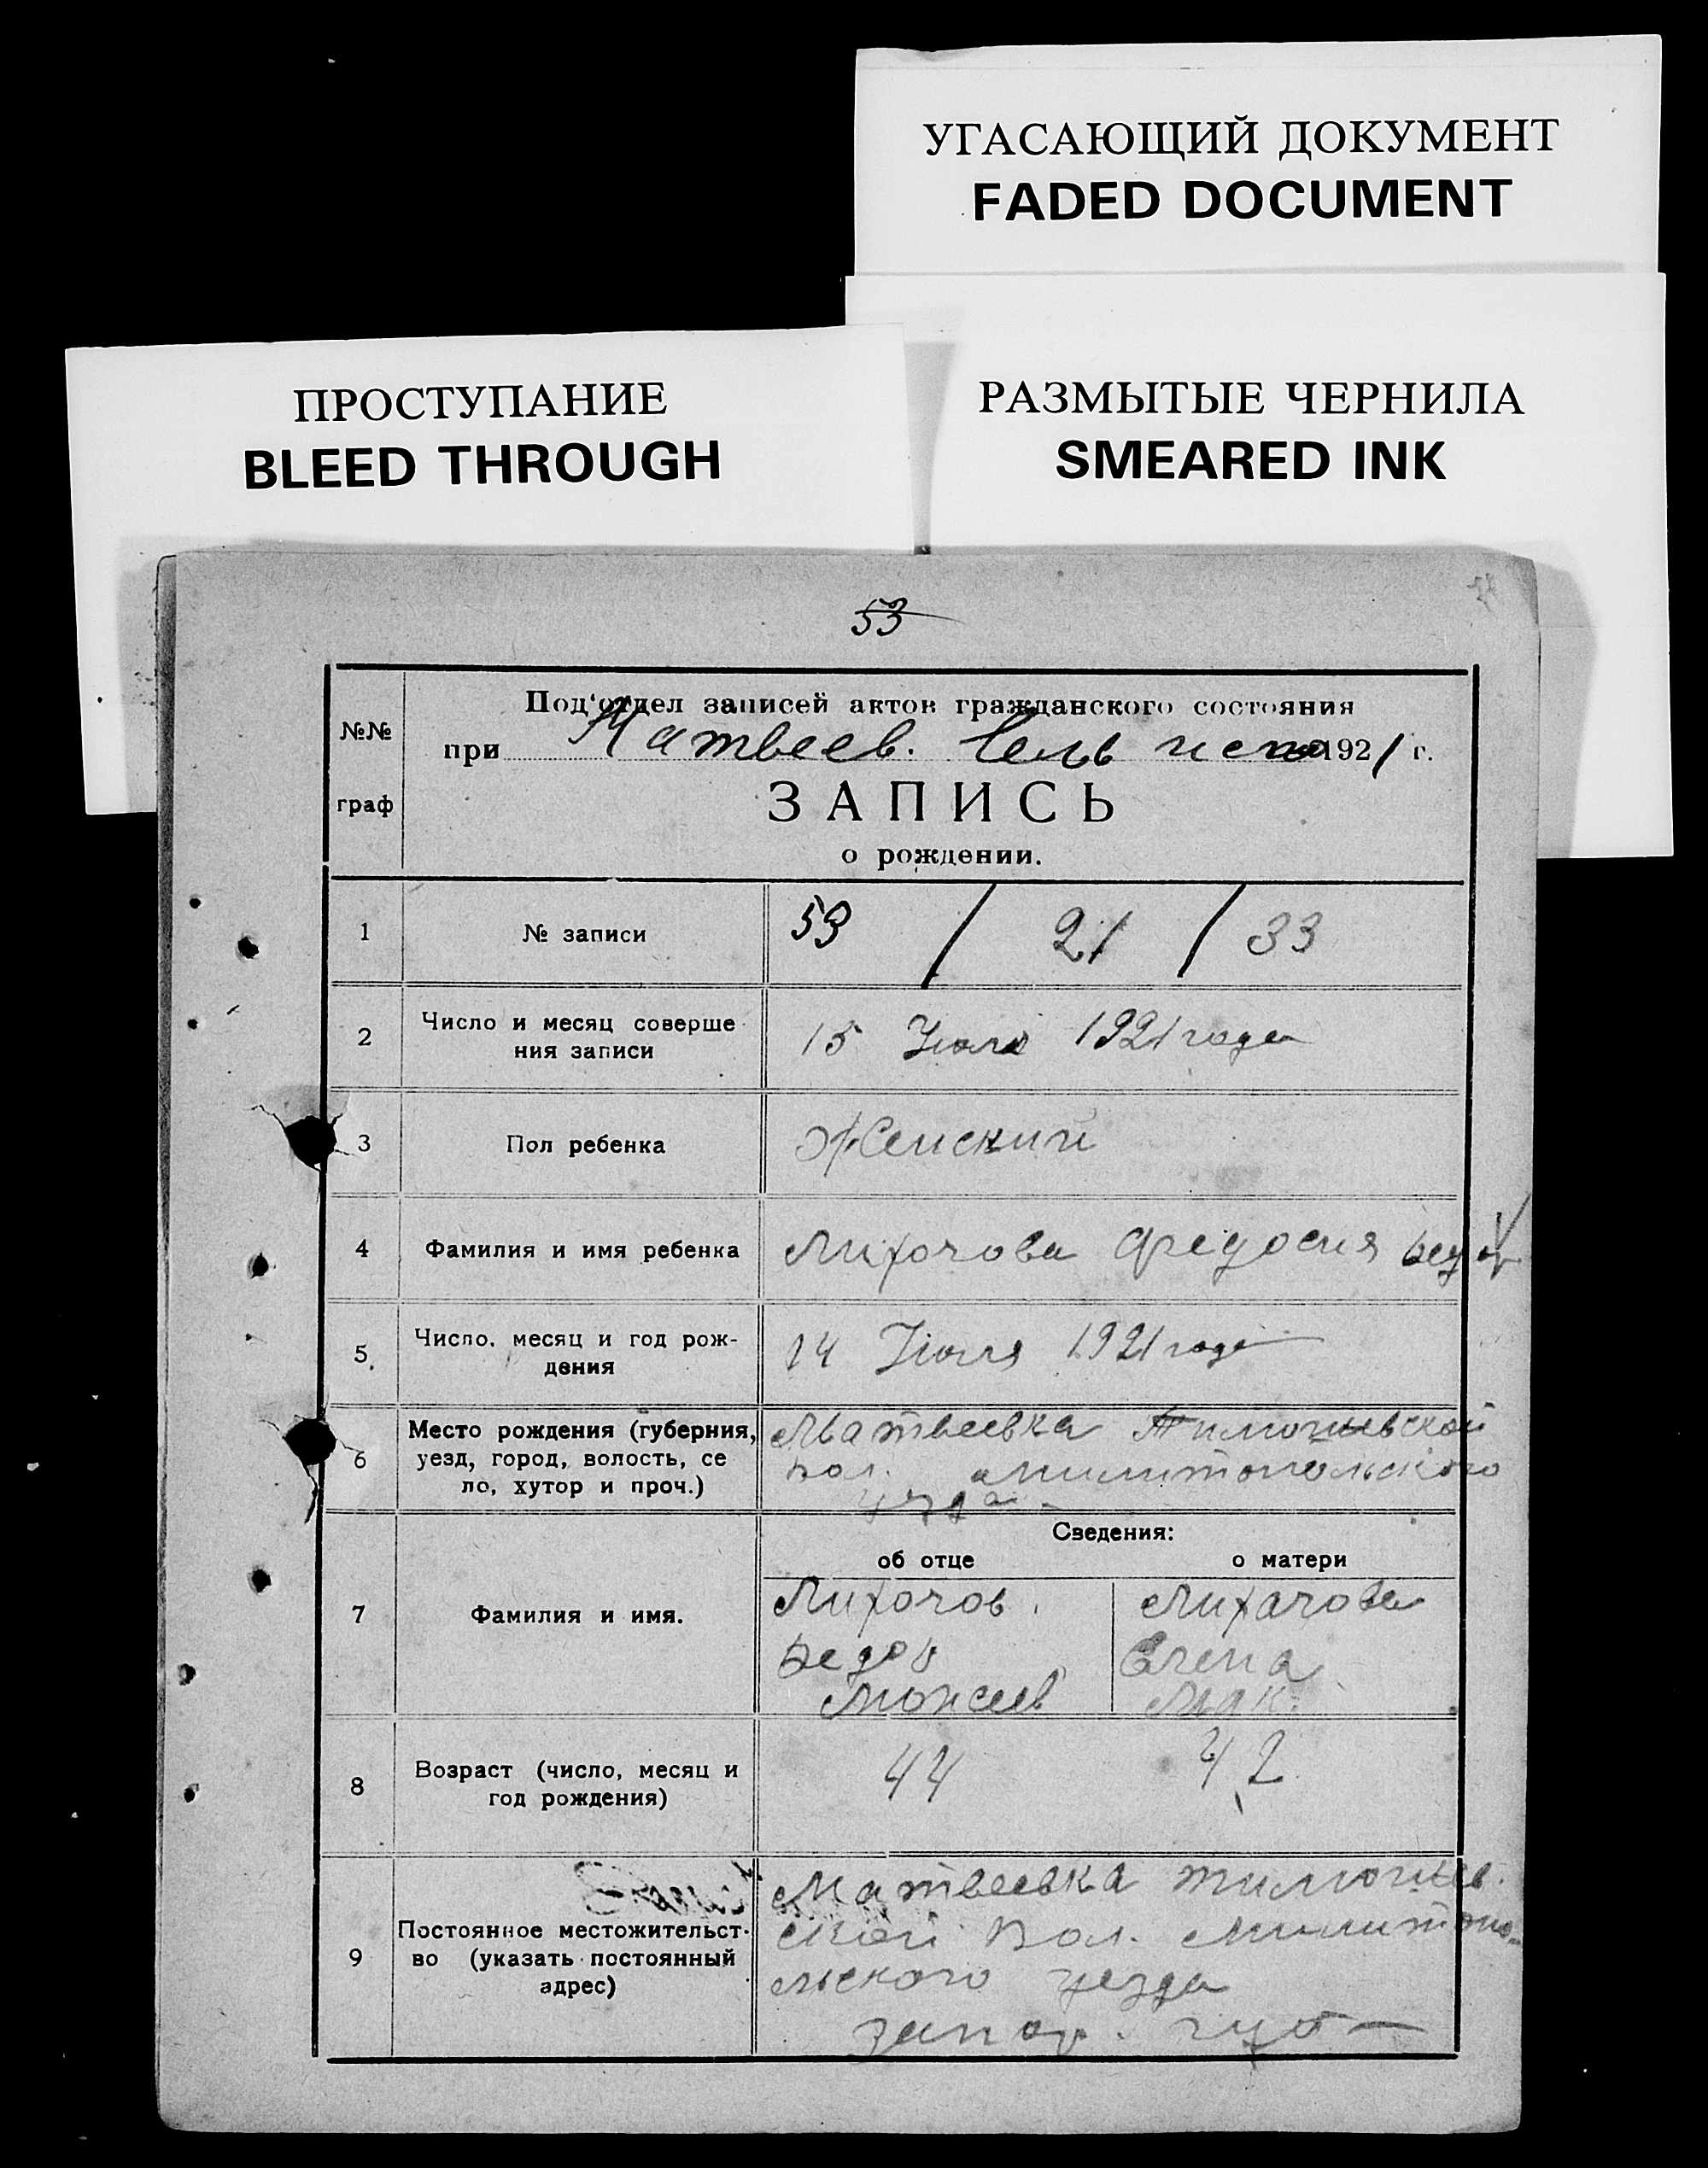 УГАСАЮЩИЙ ДОКУМЕНТ
FADED DOCUMENT
ПРОСТУПАНИЕ
BLEED THROUGH
РАЗМЫТЫЕ ЧЕРНИЛА
SMEARED INK
53
№№
граф
Под'отдел записей актов гражданского состояния
при Матвеев. Сельиспо 1921 г.
ЗАПИСЬ
о рождении.
1 № записи 53 / 21 / 33
2 Число и месяц соверше
ния записи
15 Июля 1921 года
3 Пол ребенка Женский
4 Фамилия и имя ребенка Лихочова Федосия Федор
5 Число, месяц и год рож-
дения
14 Июля 1921 года
6 Место рождения (губерния,
уезд, город, волость, се
ло, хутор и проч.)
Матвеевка Тимошевской
Вол. Милитопольского
уезда
Сведения:
об отце о матери
7 Фамилия и имя.
Лихочов
Федор
Моисеев
Лихачова
Елена
Мак.
8 Возраст (число, месяц и
год рождения)
44 42
9 Постоянное местожительст-
во (указать постоянный
адрес)
Матвеевка Тимошев.
ской Вол. Милитопо-
льского уезда
Запор. губ